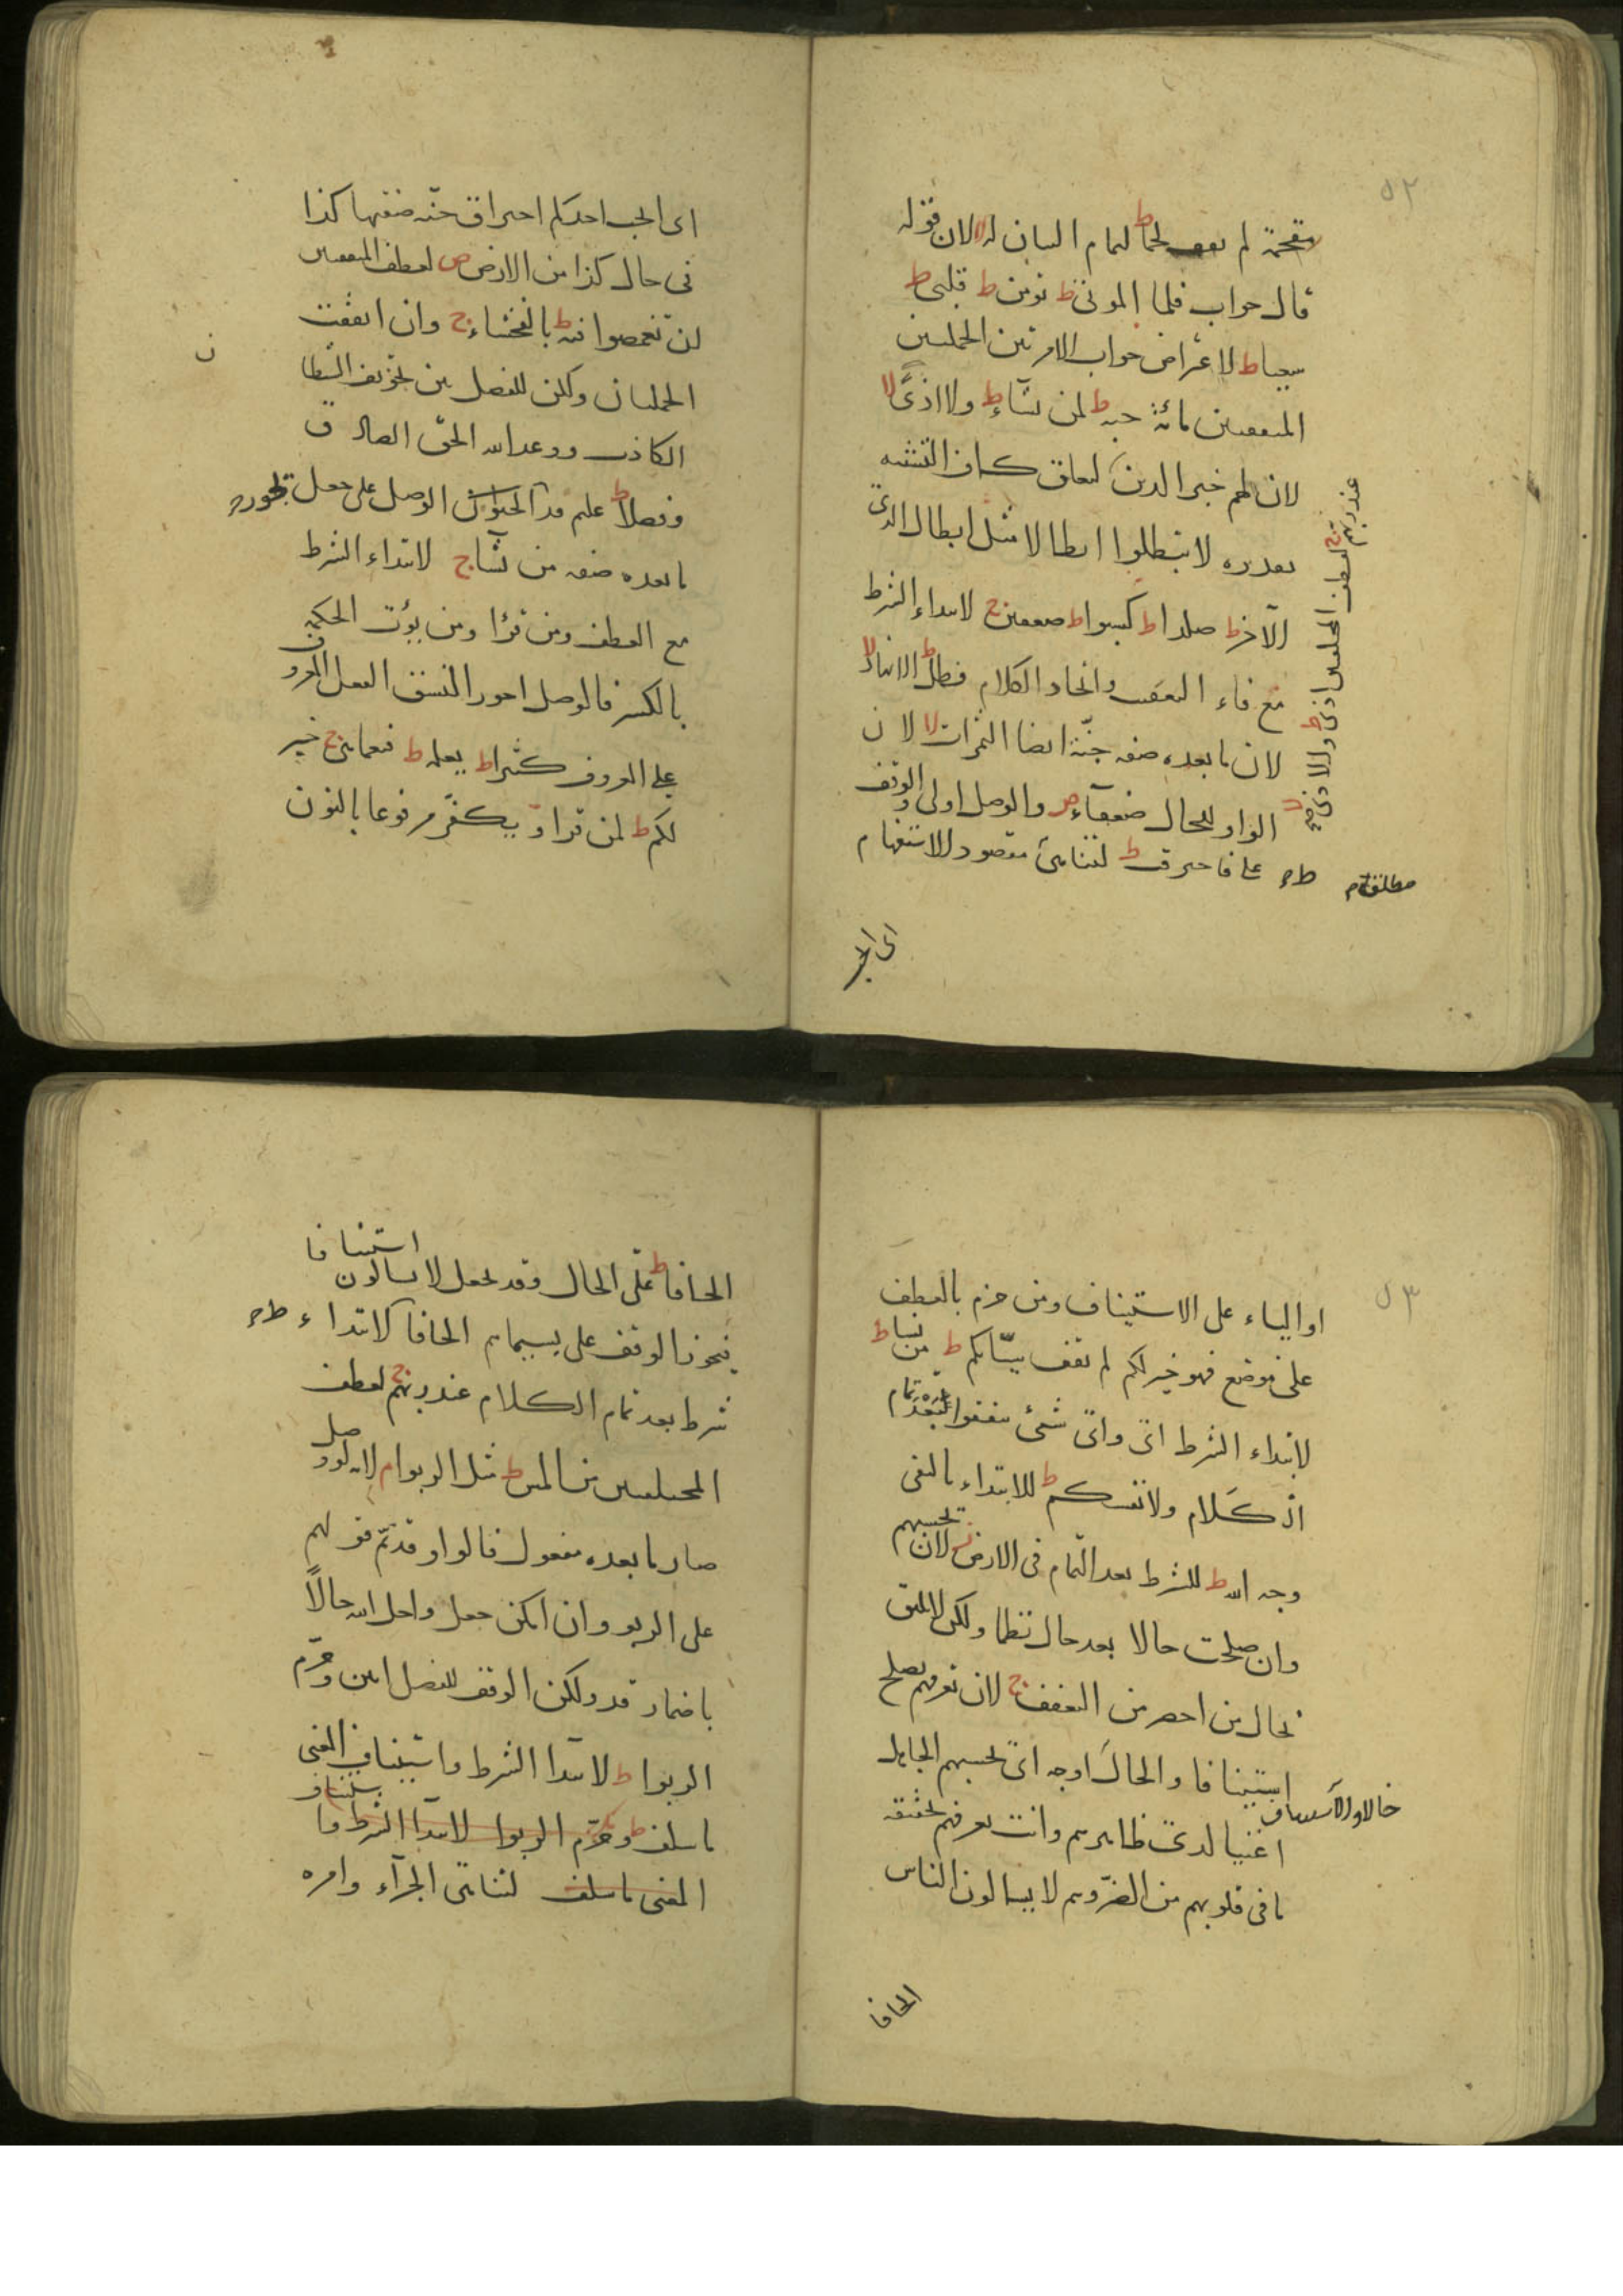 ٥٢
مقحمة لم يقف لحماط لتمام البيان له لا لان قوله
قال جواب فلما الموتى ط تومن ط قلبى ط
سعيا ط لاعتراض جواب الامر بين الجملتين
المتفقتين مائة حبة ط لمن يشاء ط ولا اذًى لا
لان لهم خبر الذين لتعلق كاف التشبيه
تقديره لا تبطلوا ابطالا مثل ابطال الذى
الآخر ط صلدا ط كسبوا ط ضعفين ج لابتداء الشرط
مع فاء التعقيب واتحاد الكلام فطل ط الانهار لا
لان ما بعده صفة جنّة ايضا الثمرات لا لان
الواو للحال ضعفآء ص والوصل اولى والوقف
على فاحترقت ط لتناهى مقصود الاستفهام
عند ربهم ج لعطف المختلفين اذى ط ولا اذى
مطلقا م
اى الحب
اى ايحب احدكم احتراق جنّة صفتها كذا
فى حال كذا من الارض ص لعطف المتفقتين
ان تغمضوا فيه ط بالفحشاء ج وان اتفقت
الجملتان ولكن للفصل بين تخويف الشيطان
الكاذب ووعد الله الحقّ الصادق
وفضلا ط عليم قد الوصل على جعل
ما بعده صفة من يشا ج لابتداء الشرط
مع العطف ومن قرا ومن يؤت الحكمة
بالكسر فالوصل اجوز النسق الفعل المعروف
على المعروف كثيرا ط يعلمه ط فنعما هى ج خير
لكم ط لمن قرا ويكفّر مرفوعا بالنون
٥٣
او الياء على الاستيناف ومن جزم بالعطف
على موضع فهو خير لكم لم يقف سيّاتكم ط من يشا ط
لابتداء الشرط اىّ واىّ شئ تنفقوا بعد تمام
اى كلام ولانفسكم ط للابتداء بالنفى
وجه الله ط للشرط بعد التمام فى الارض ز لان يحسبهم
وان صلحت حالا بعد حال نظما ولكن لا يليق
بحال من احصر من التعفف ج لان تعرفهم يصلح
استينافا والحال اوجه اى يحسبهم الجاهل
حالا والاستيناف
اغنيا لدى ظاهرهم وانت تعرفهم بحقيقة
ما فى قلوبهم من الضرّ وهم لا يسالون الناس
الحافا
الحافا ط على الحال وقد يجعل لا يسالون استينافا
فيجوز الوقف على بسيماهم الحافا لابتداء
شرط بعد تمام الكلام عند ربهم ج لعطف
المختلفين من المس ط مثل الربوا م لانه لو وصل
صار ما بعده مفعول قالوا وقد تمّ قولهم
على الربو وان امكن جعل واحل الله حالاً
باضمار قد ولكن الوقف للفصل ابين وحرّم
الربوا ط لابتدا الشرط واستيناف المعنى
ما سلف ط وحرّم الربوا لابتدا الشرط وا ستيناف
المعنى ما سلف لتناهى الجزآء وامره